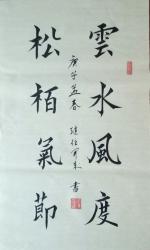 雲水風度
松栢氣節
庚子孟春
書